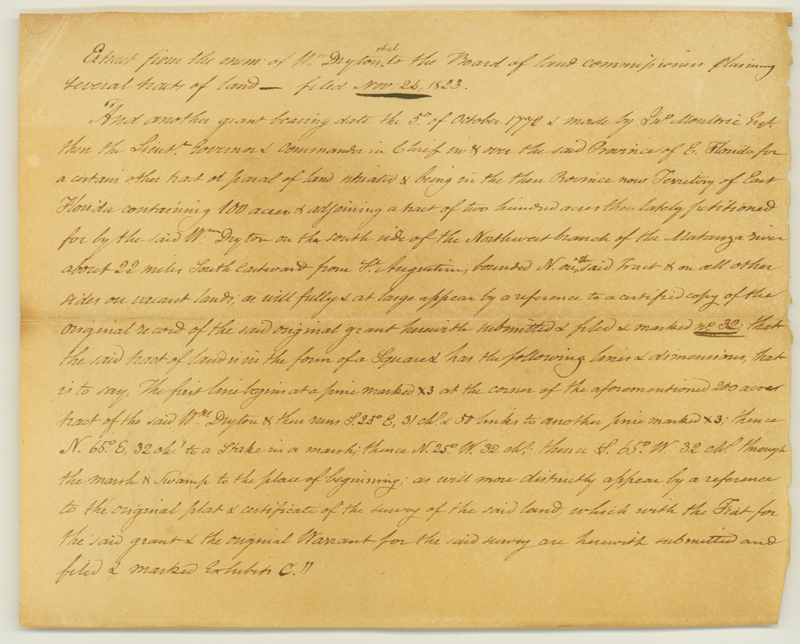 Extract from the mem: of Wm Dryton et al to the Board of land commissioners claiming
several tracts of land — filed Nov 26, 1823.
"And another grant bearing date the 5th of October 177 & made by Jno Moultrie Esqr.
then the Lieut. Governor & commander in Chief in & over the said Province of E. Florida for
a certain other tract or parcel of land situated & being in the then Province now Territory of East
Florida containing 100 acres & adjoining a tract of two hundred acres then lately petitioned
for by the said Wm Dryton on the south side of the Northwest branch of the Matanza river
about 22 miles South Eastward from St. Augustine, bounded N. on the said Tract & on all other
sides on vacant lands, as will fully & at large appear by a reference to a certified copy of the
original record of the said original grant herewith submitted & filed & marked no 32; that
the said tract of land is in the form of a Square & has the following lines & dimensions, that
is to say, The first line begins at a pine marked x3 at the corner of the aforementioned 200 acres
tract of the said Wm Dryton & then runs S. 25o E, 31 chs & 50 links to another pine marked x3; thence
N. 65o E, 32 chs to a Stake in a marsh; thence N. 25o W. 32 chs. thence S. 65o W. 32 chs through
the marsh & Swamp to the place of beginning; as will more distinctly appear by a reference
to the original plat & certificate of the survey of the said land, which with the Fiat for
the said grant & the original Warrant for the said survey are herewith submitted and
filed & marked Exhibits C."